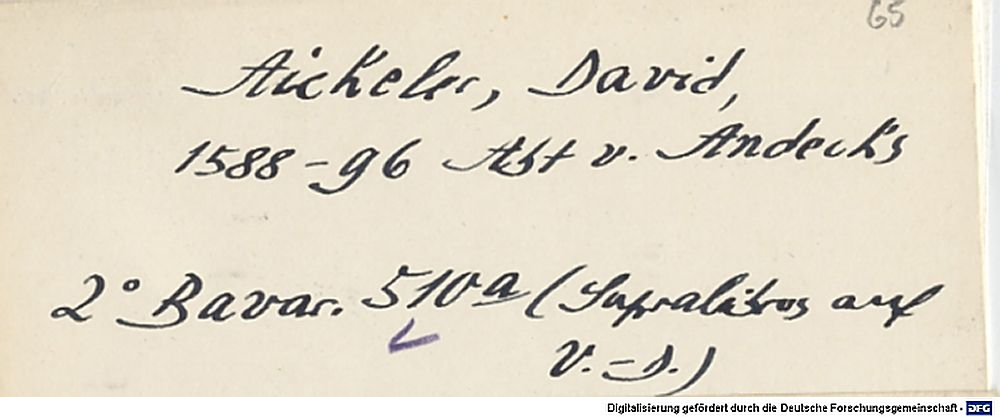 65
Aickeler, David,
1588-96 Abt v. Andechs
2° Bavar. 510a (Supralibros auf
V.-D.)
Digitalisierung gefördert durch die Deutsche Forschungsgemeinschaft - DFG